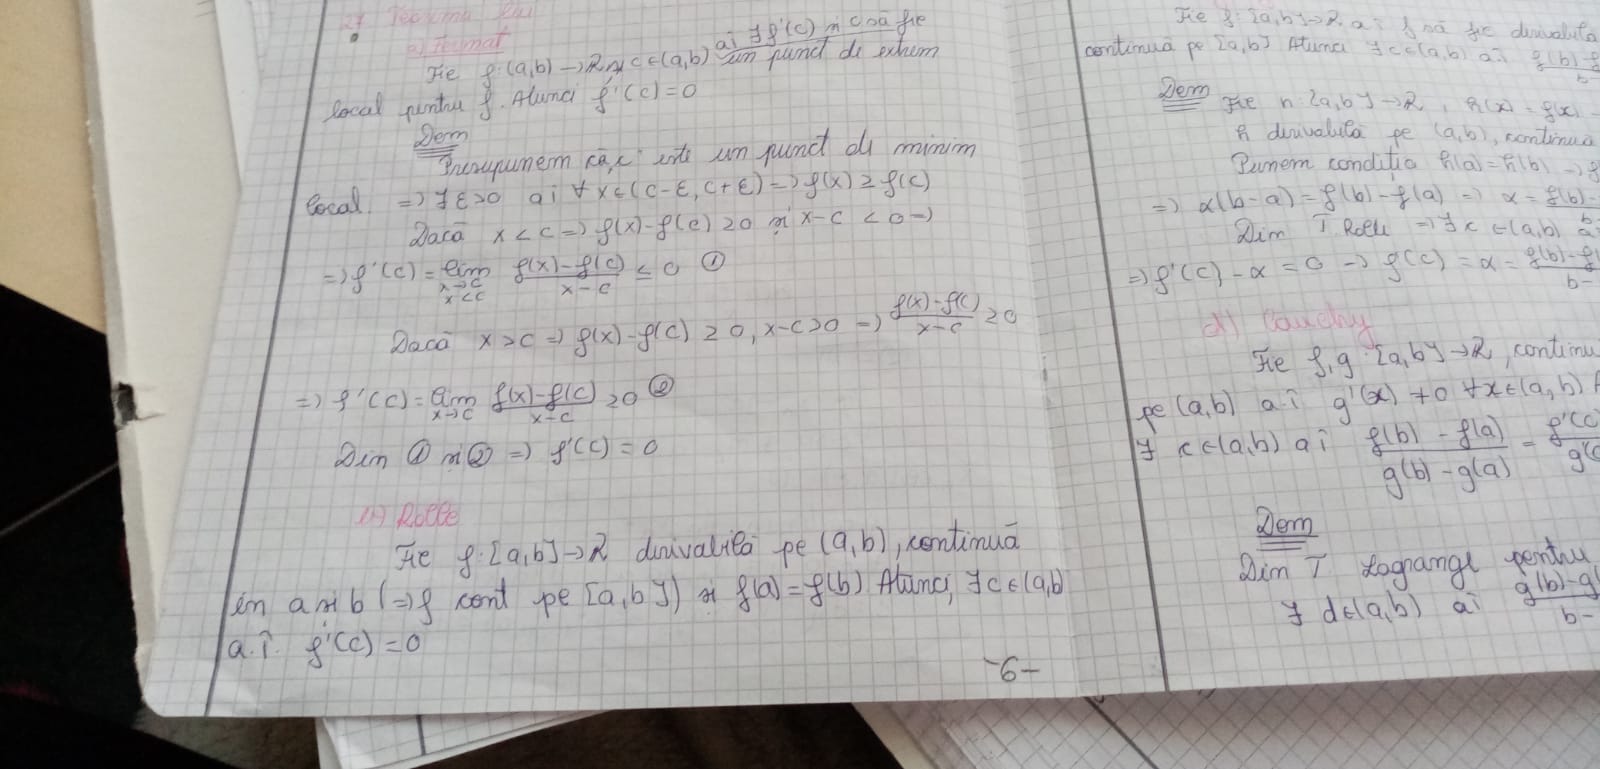 27. Teorema lui
a) Fermat
Fie f:(a,b)→R și c∈(a,b) aî ∃f'(c) și c să fie un punct de extrem
local pentru f. Atunci f'(c)=0
Dem
Presupunem că c este un punct de minim
local. ⇒ ∃ε>0 aî ∀x∈(c-ε, c+ε) ⇒ f(x)≥f(c)
Dacă x<c ⇒ f(x)-f(c)≥0 și x-c<0 ⇒
⇒ f'(c)= lim x→c x<c (f(x)-f(c))/(x-c) ≤0 ①
Dacă x>c ⇒ f(x)-f(c)≥0, x-c>0 ⇒ (f(x)-f(c))/(x-c) ≥0
⇒ f'(c)= lim x→c (f(x)-f(c))/(x-c) ≥0 ②
Din ① și ② ⇒ f'(c)=0
b) Rolle
Fie f:[a,b]→R derivabilă pe (a,b), continuă
în a și b (⇒ f cont pe [a,b]) și f(a)=f(b) Atunci, ∃c∈(a,b)
a.î. f'(c)=0
-9-
Fie f:[a,b]→R. aî f să fie derivabilă
continuă pe [a,b] Atunci ∃c∈(a,b) aî f(b)-f
b-
Dem
Fie h:[a,b]→R, h(x)=f(x)-
h derivabilă pe (a,b), continuă
Punem condiția h(a)=h(b) ⇒ f
⇒ α(b-a)=f(b)-f(a) ⇒ α= f(b)-
b-
Din T Rolle ⇒ ∃c∈(a,b) a
⇒ f'(c)-α=0 ⇒ f'(c)=α= f(b)-f(
b-
d) Cauchy
Fie f,g:[a,b]→R, continu
pe (a,b) a.î g'(x)≠0 ∀x∈(a,b) A
∃ c∈(a,b) aî (f(b)-f(a))/(g(b)-g(a)) = f'(c / g'(c
Dem
Din T Lagrange pentru
∃ d∈(a,b) aî g(b)-g(
b-